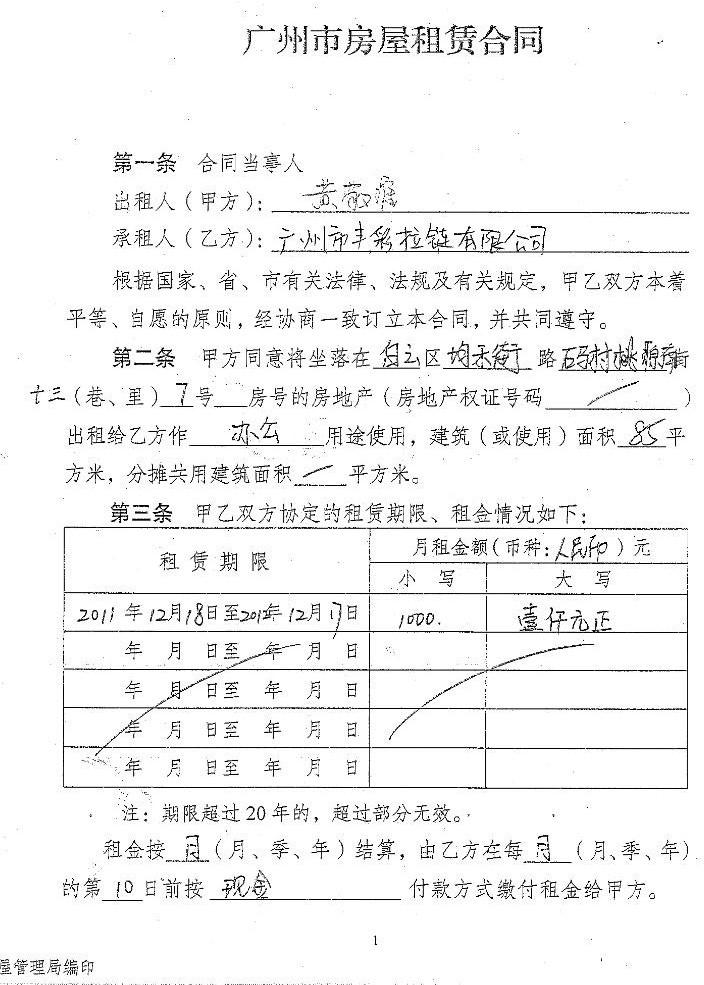 广州市房屋租赁合同
第一条 合同当事人
出租人（甲方）：黄敬
承租人（乙方）：广州市丰彩拉链有限公司
根据国家、省、市有关法律、法规及有关规定，甲乙双方本着
平等、自愿的原则，经协商一致订立本合同，并共同遵守。
第二条 甲方同意将坐落在 白云 区 均禾街 路 石马村桃源 街
十三（巷、里）7号 房号的房地产（房地产权证号码 / ）
出租给乙方作 办公 用途使用，建筑（或使用）面积 85 平
方米，分摊共用建筑面积 / 平方米。
第三条 甲乙双方协定的租赁期限、租金情况如下：
租赁期限 月租金额（币种：人民币）元
小写 大写
2011年12月18日至2012年12月17日 1000. 壹仟元正
年 月 日至 年 月 日
年 月 日至 年 月 日
年 月 日至 年 月 日
年 月 日至 年 月 日
注：期限超过20年的，超过部分无效。
租金按 月（月、季、年）结算，由乙方在每 月（月、季、年）
的第 10 日前按 现金 付款方式缴付租金给甲方。
1
屋管理局编印